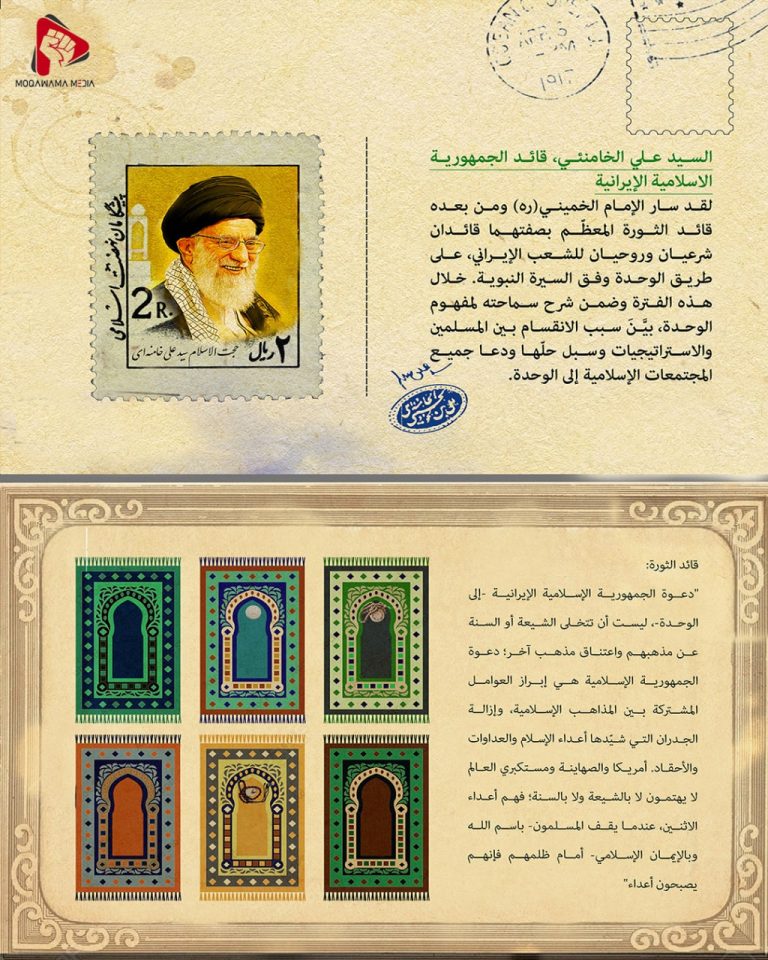 MOQAWAMA MEDIA
APR 6
1917
پیشگامان نهضت اسلامی
2 R.
۲ ریال
حجت الاسلام سید علی خامنه ای
السيد علي الخامنئي، قائد الجمهورية
الاسلامية الإيرانية
لقد سار الإمام الخميني(ره) ومن بعده
قائد الثورة المعظّم بصفتهما قائدان
شرعيان وروحيان للشعب الإيراني، على
طريق الوحدة وفق السيرة النبوية. خلال
هذه الفترة وضمن شرح سماحته لمفهوم
الوحدة، بيَّنَ سبب الانقسام بين المسلمين
والاستراتيجيات وسبل حلّها ودعا جميع
المجتمعات الإسلامية إلى الوحدة.
قائد الثورة:
"دعوة الجمهورية الإسلامية الإيرانية -إلى
الوحدة-، ليست أن تتخلى الشيعة أو السنة
عن مذهبهم واعتناق مذهب آخر؛ دعوة
الجمهورية الإسلامية هي إبراز العوامل
المشتركة بين المذاهب الإسلامية، وإزالة
الجدران التي شيّدها أعداء الإسلام والعداوات
والأحقاد. أمريكا والصهاينة ومستكبري العالم
لا يهتمون لا بالشيعة ولا بالسنة؛ فهم أعداء
الاثنين، عندما يقف المسلمون- باسم الله
وبالإيمان الإسلامي- أمام ظلمهم فإنهم
يصبحون أعداء"